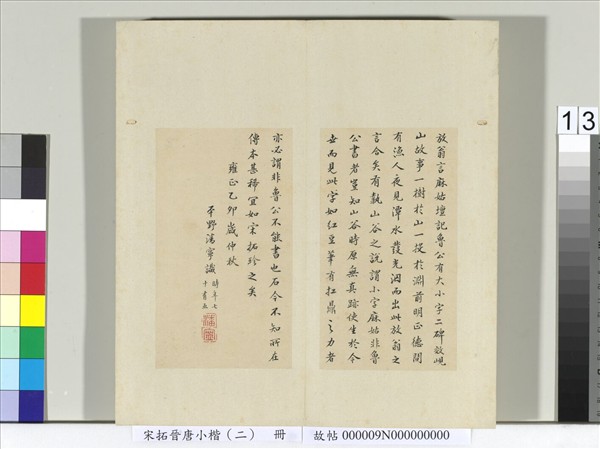 放翁言麻姑壇記魯公有大小字二碑效峴
山故事一樹於山一投於淵前明正德間
有漁人夜見潭水發光洄而出此放翁之
言合矣有執山谷之說謂小字麻姑非魯
公書者豈知山谷時原無真跡使生於今
世而見此字如紅豆筆有扛鼎之力者
亦必謂非魯公不能書也石今不知所在
傳本甚稀宜如宋拓珍之矣
雍正乙卯歲仲秋
平野識
時年七
十有五
宋拓晉唐小楷（二） 冊 故帖 000009N000000000
13